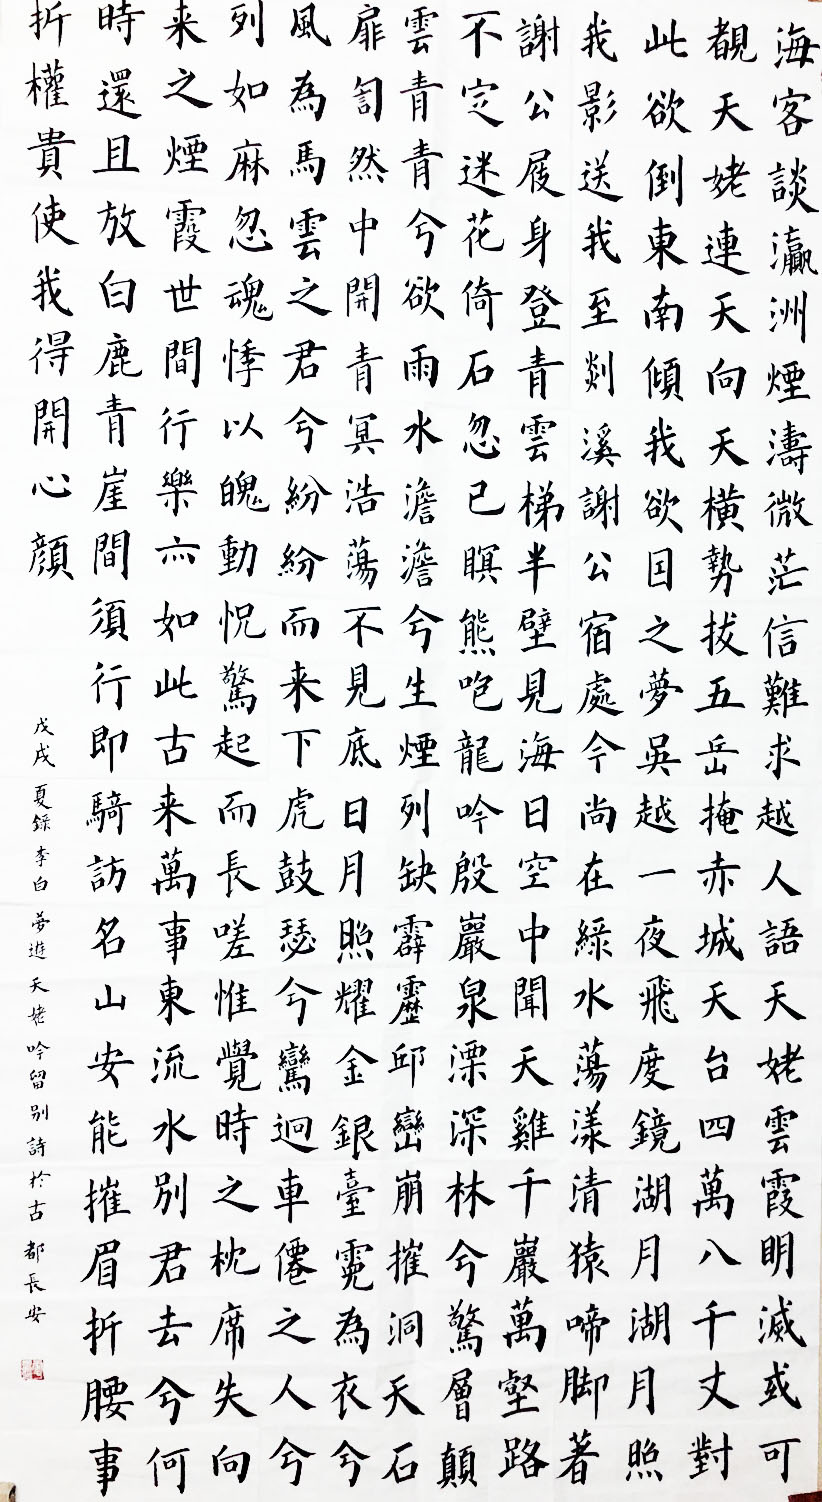 海客談瀛洲煙濤微茫信難求越人語天姥雲霞明滅或可
覩天姥連天向天橫勢拔五岳掩赤城天台四萬八千丈對
此欲倒東南傾我欲囙之夢吳越一夜飛度鏡湖月湖月照
我影送我至剡溪謝公宿處今尚在綠水蕩漾清猿啼脚著
謝公屐身登青雲梯半壁見海日空中聞天雞千巖萬壑路
不定迷花倚石忽已瞑熊咆龍吟殷巖泉溧深林兮驚層顛
雲青青兮欲雨水澹澹兮生煙列缺霹靂邱巒崩摧洞天石
扉訇然中開青冥浩蕩不見底日月照耀金銀臺霓為衣兮
風為馬雲之君兮紛紛而来下虎鼓瑟兮鸞迴車僊之人兮
列如麻忽魂悸以魄動怳驚起而長嗟惟覺時之枕席失向
来之煙霞世間行樂亦如此古来萬事東流水別君去兮何
時還且放白鹿青崖間須行即騎訪名山安能摧眉折腰事
折權貴使我得開心顏
戊戌夏錄李白夢遊天姥吟留别詩於古都長安